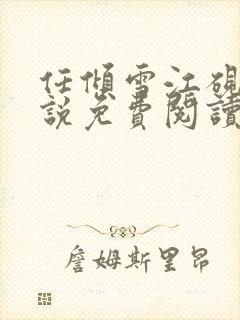 任傾雪江硯
説免費閱讀
詹姆斯里昂